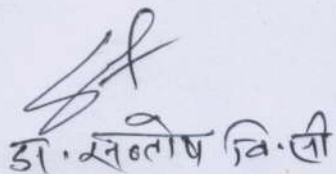 डॉ. सन्तोष वि.सी